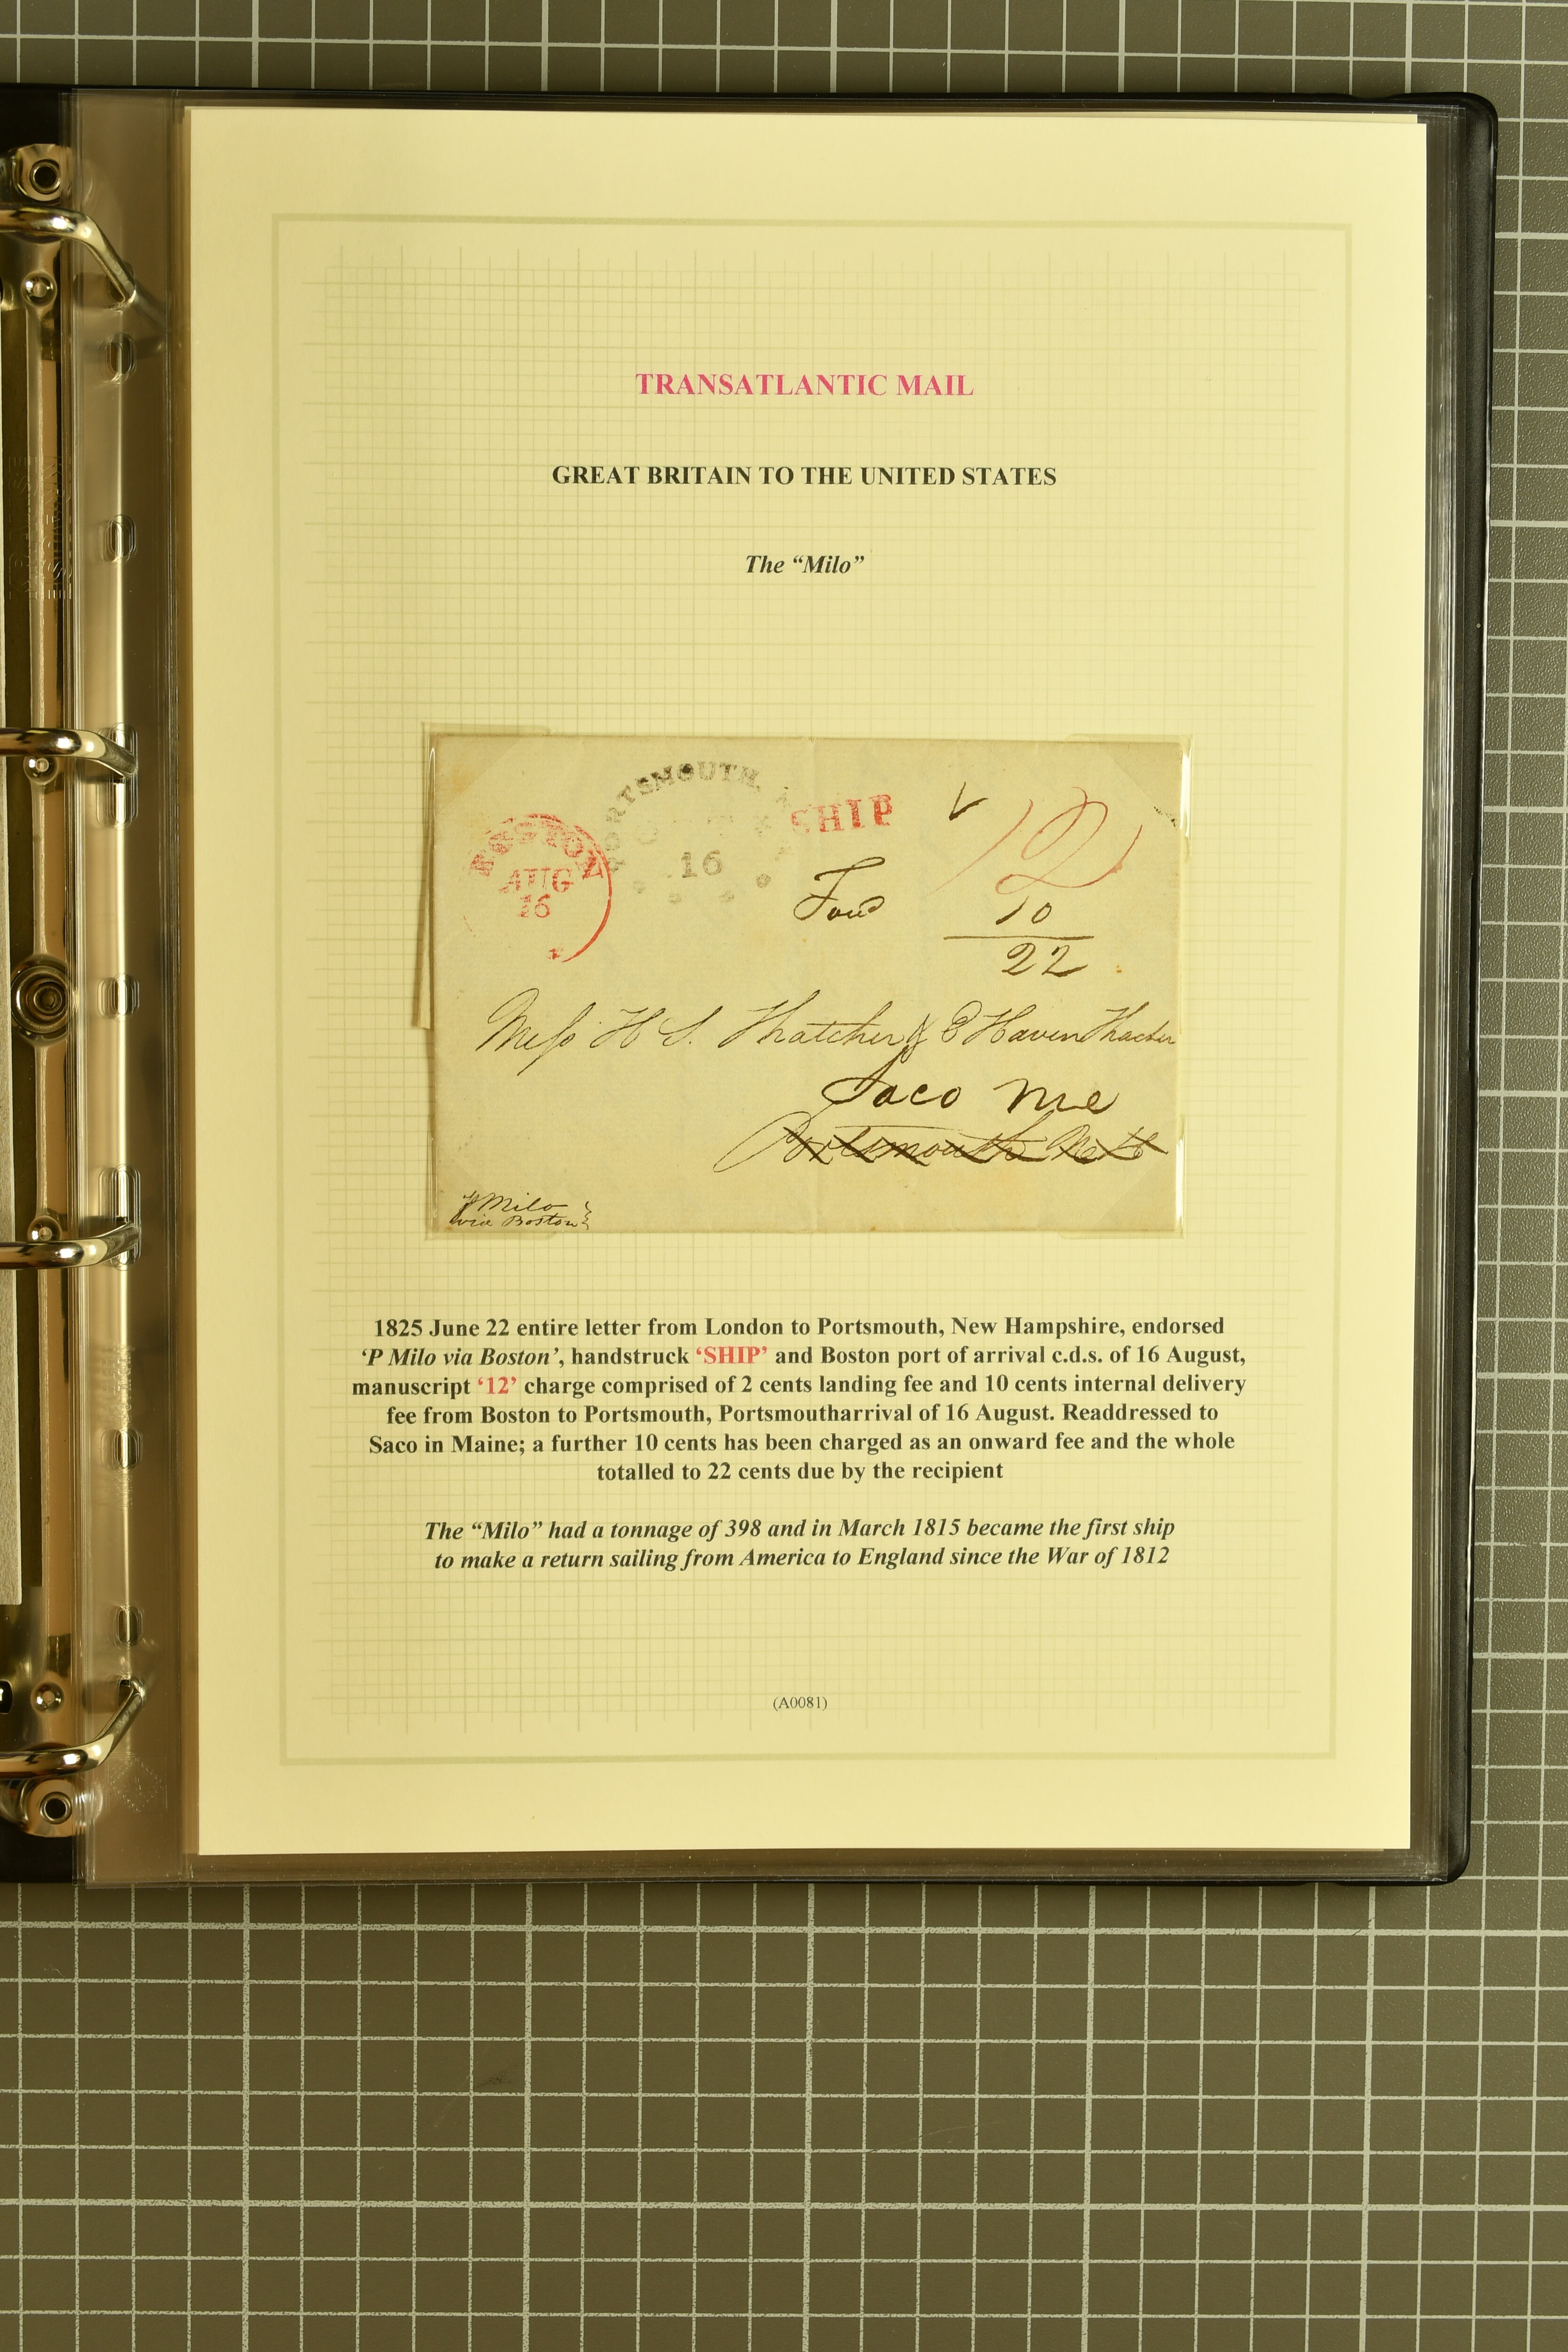 TRANSATLANTIC MAIL
GREAT BRITAIN TO THE UNITED STATES
The “Milo”
PORTSMOUTH, N
16
BOSTON
AUG
16
SHIP
12
Forw
10
22
Mess H S. Thatcher & E Haven Thacher
Saco Me
Portsmouth
P Milo
via Boston
1825 June 22 entire letter from London to Portsmouth, New Hampshire, endorsed
‘P Milo via Boston’, handstruck ‘SHIP’ and Boston port of arrival c.d.s. of 16 August,
manuscript ‘12’ charge comprised of 2 cents landing fee and 10 cents internal delivery
fee from Boston to Portsmouth, Portsmoutharrival of 16 August. Readdressed to
Saco in Maine; a further 10 cents has been charged as an onward fee and the whole
totalled to 22 cents due by the recipient
The “Milo” had a tonnage of 398 and in March 1815 became the first ship
to make a return sailing from America to England since the War of 1812
(A0081)